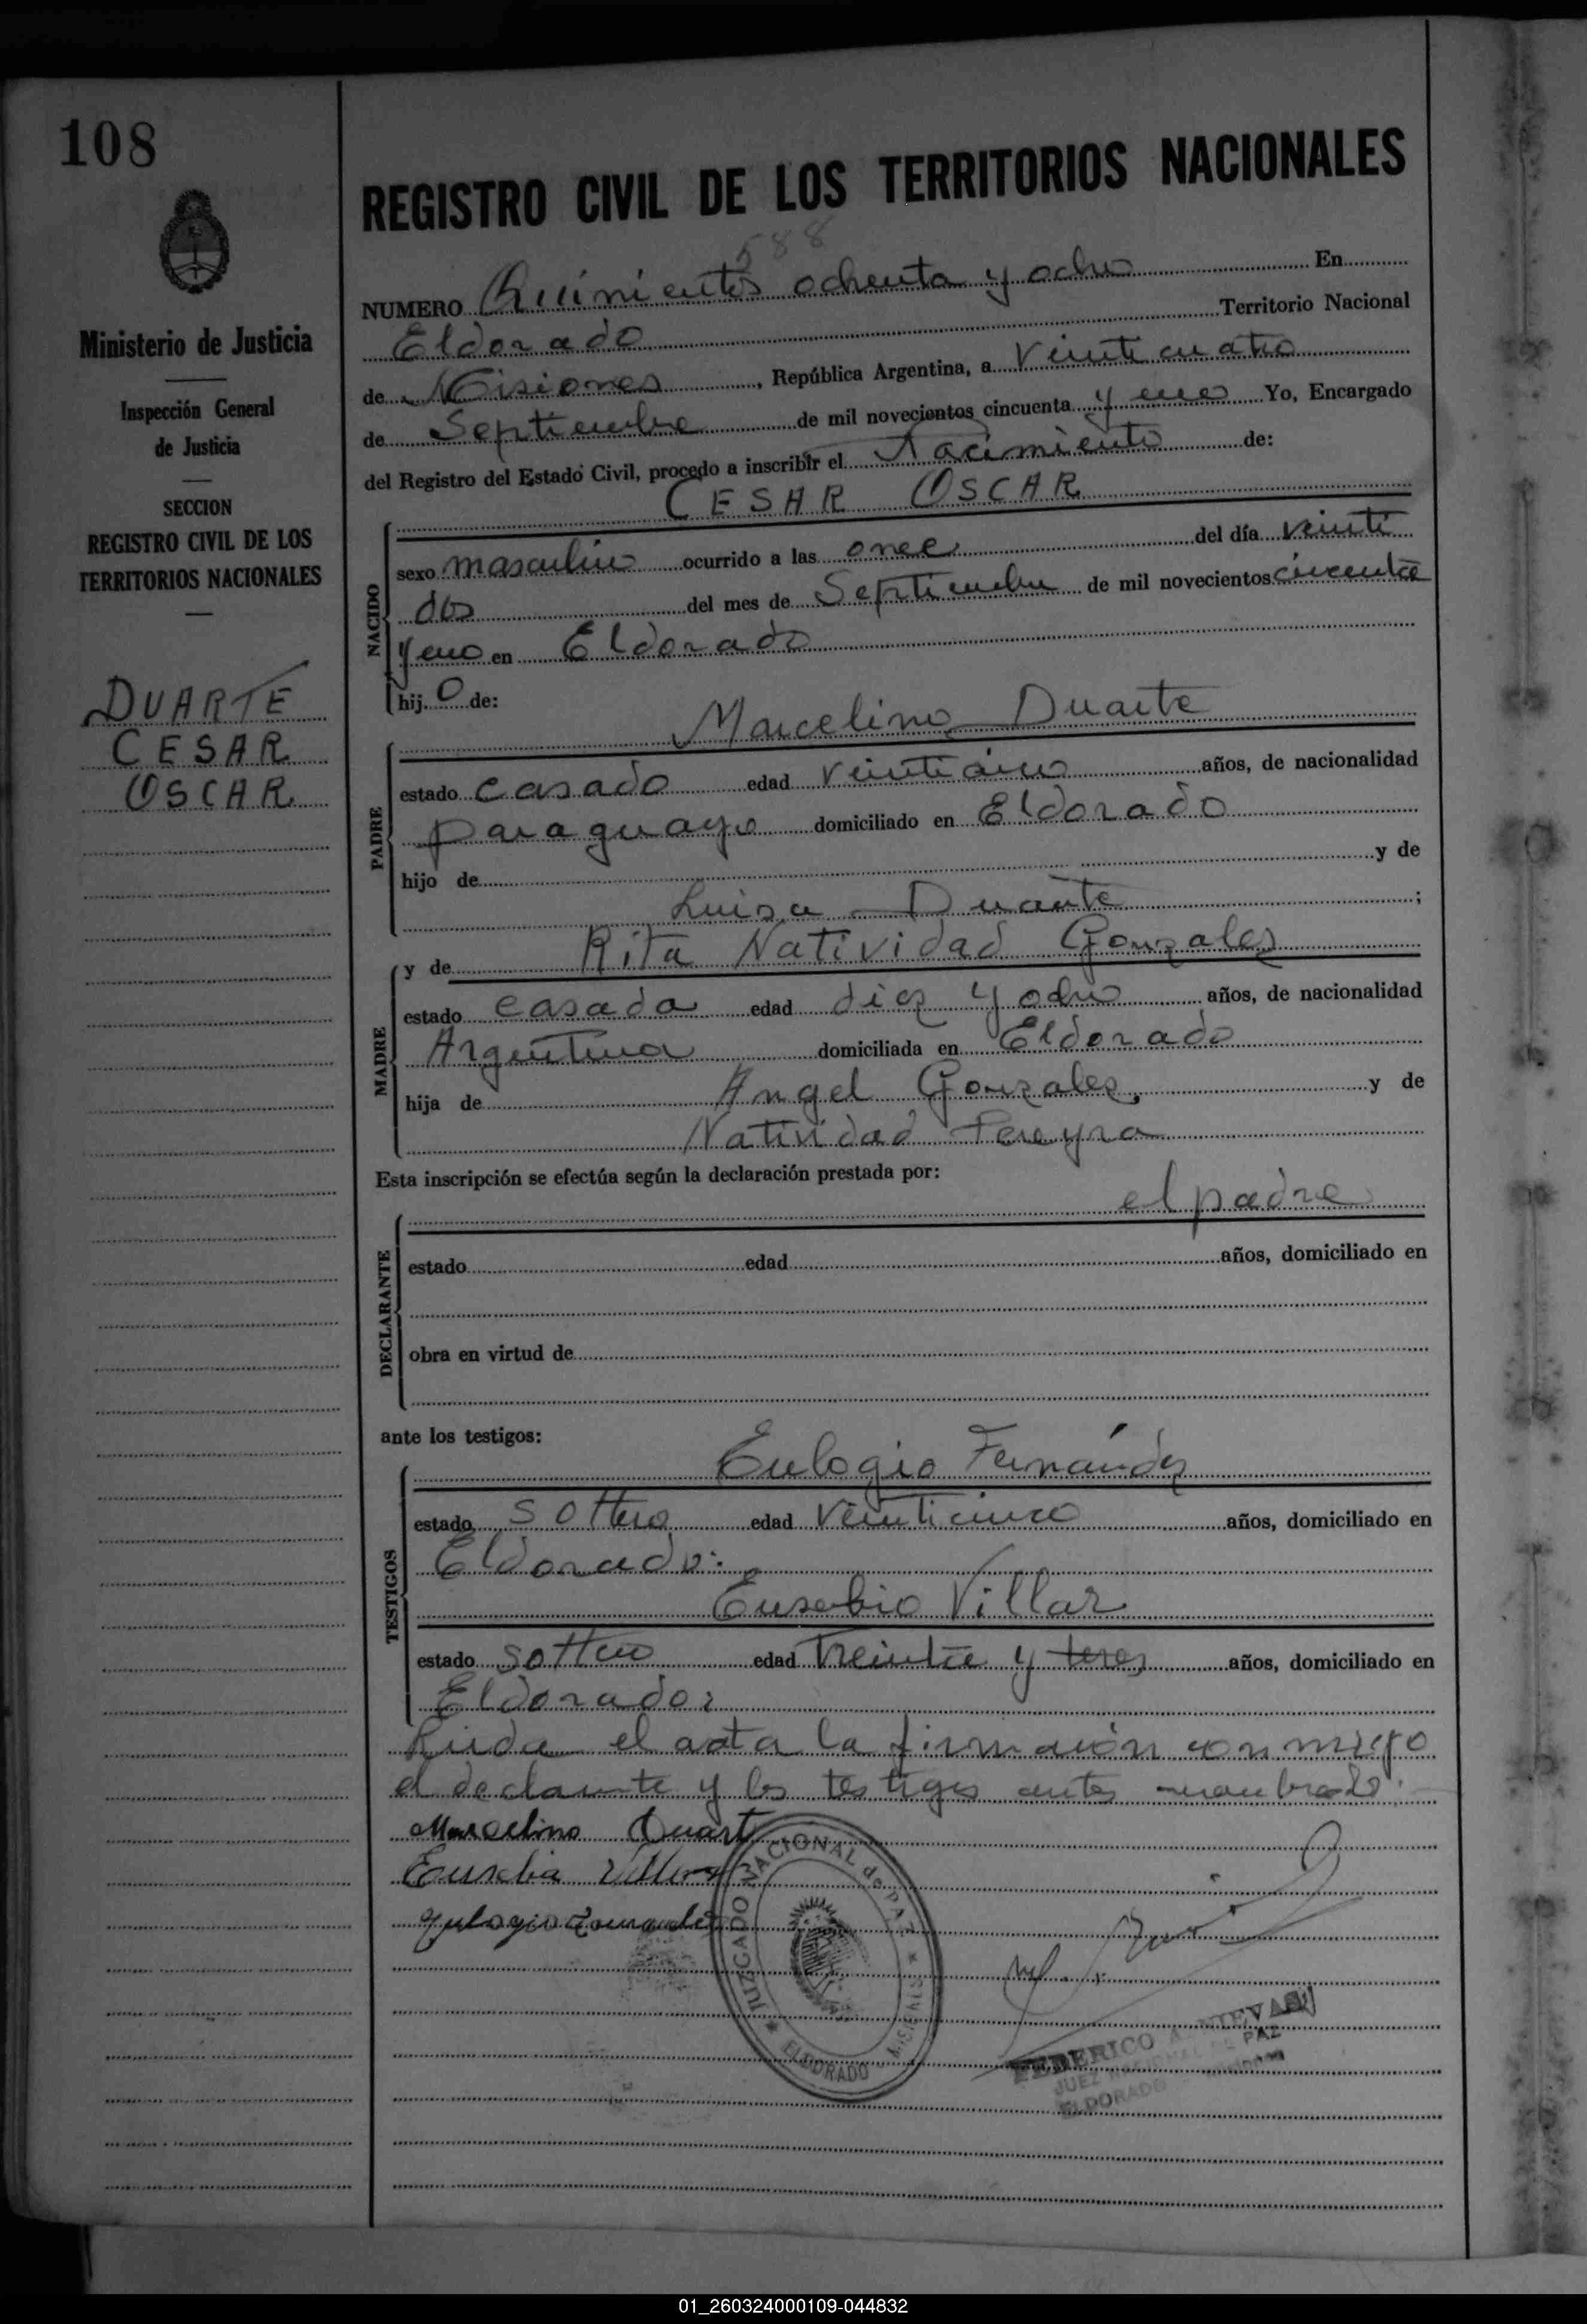 108
Ministerio de Justicia
Inspección General
de Justicia
SECCION
REGISTRO CIVIL DE LOS
TERRITORIOS NACIONALES
DUARTE
CESAR
OSCAR
REGISTRO CIVIL DE LOS TERRITORIOS NACIONALES
588
NUMERO Quinientos ochenta y ocho En
Eldorado Territorio Nacional
de Misiones, República Argentina, a Veinticuatro
de Septiembre de mil novecientos cincuenta y uno Yo, Encargado
del Registro del Estado Civil, procedo a inscribir el Nacimiento de:
CESAR OSCAR
NACIDO
sexo masculino ocurrido a las once del día veinti
dos del mes de Septiembre de mil novecientos cincuenta
y uno en Eldorado
hij o de:
Marcelino Duarte
PADRE
estado casado edad veinticinco años, de nacionalidad
paraguayo domiciliado en Eldorado
hijo de y de
Luisa Duarte;
y de Rita Natividad Gonzales
MADRE
estado casada edad diez y ocho años, de nacionalidad
Argentina domiciliada en Eldorado
hija de Angel Gonzales, y de
Natividad Pereyra
Esta inscripción se efectúa según la declaración prestada por:
el padre
DECLARANTE
estado edad años, domiciliado en
obra en virtud de
ante los testigos:
Eulogio Fernández
TESTIGOS
estado soltero edad Veinticinco años, domiciliado en
Eldorado:
Eusebio Villar
estado soltero edad treinta y tres años, domiciliado en
Eldorado:
el acta la firmaron conmigo
el declarante y los testigos antes nombrado.
Marcelino Duart
Eusebia
JUZGADO NACIONAL de PAZ
ELDORADO - MISIONES
FEDERICO A. NIEVAS
JUEZ NACIONAL DE PAZ
ELDORADO
01_260324000109-044832